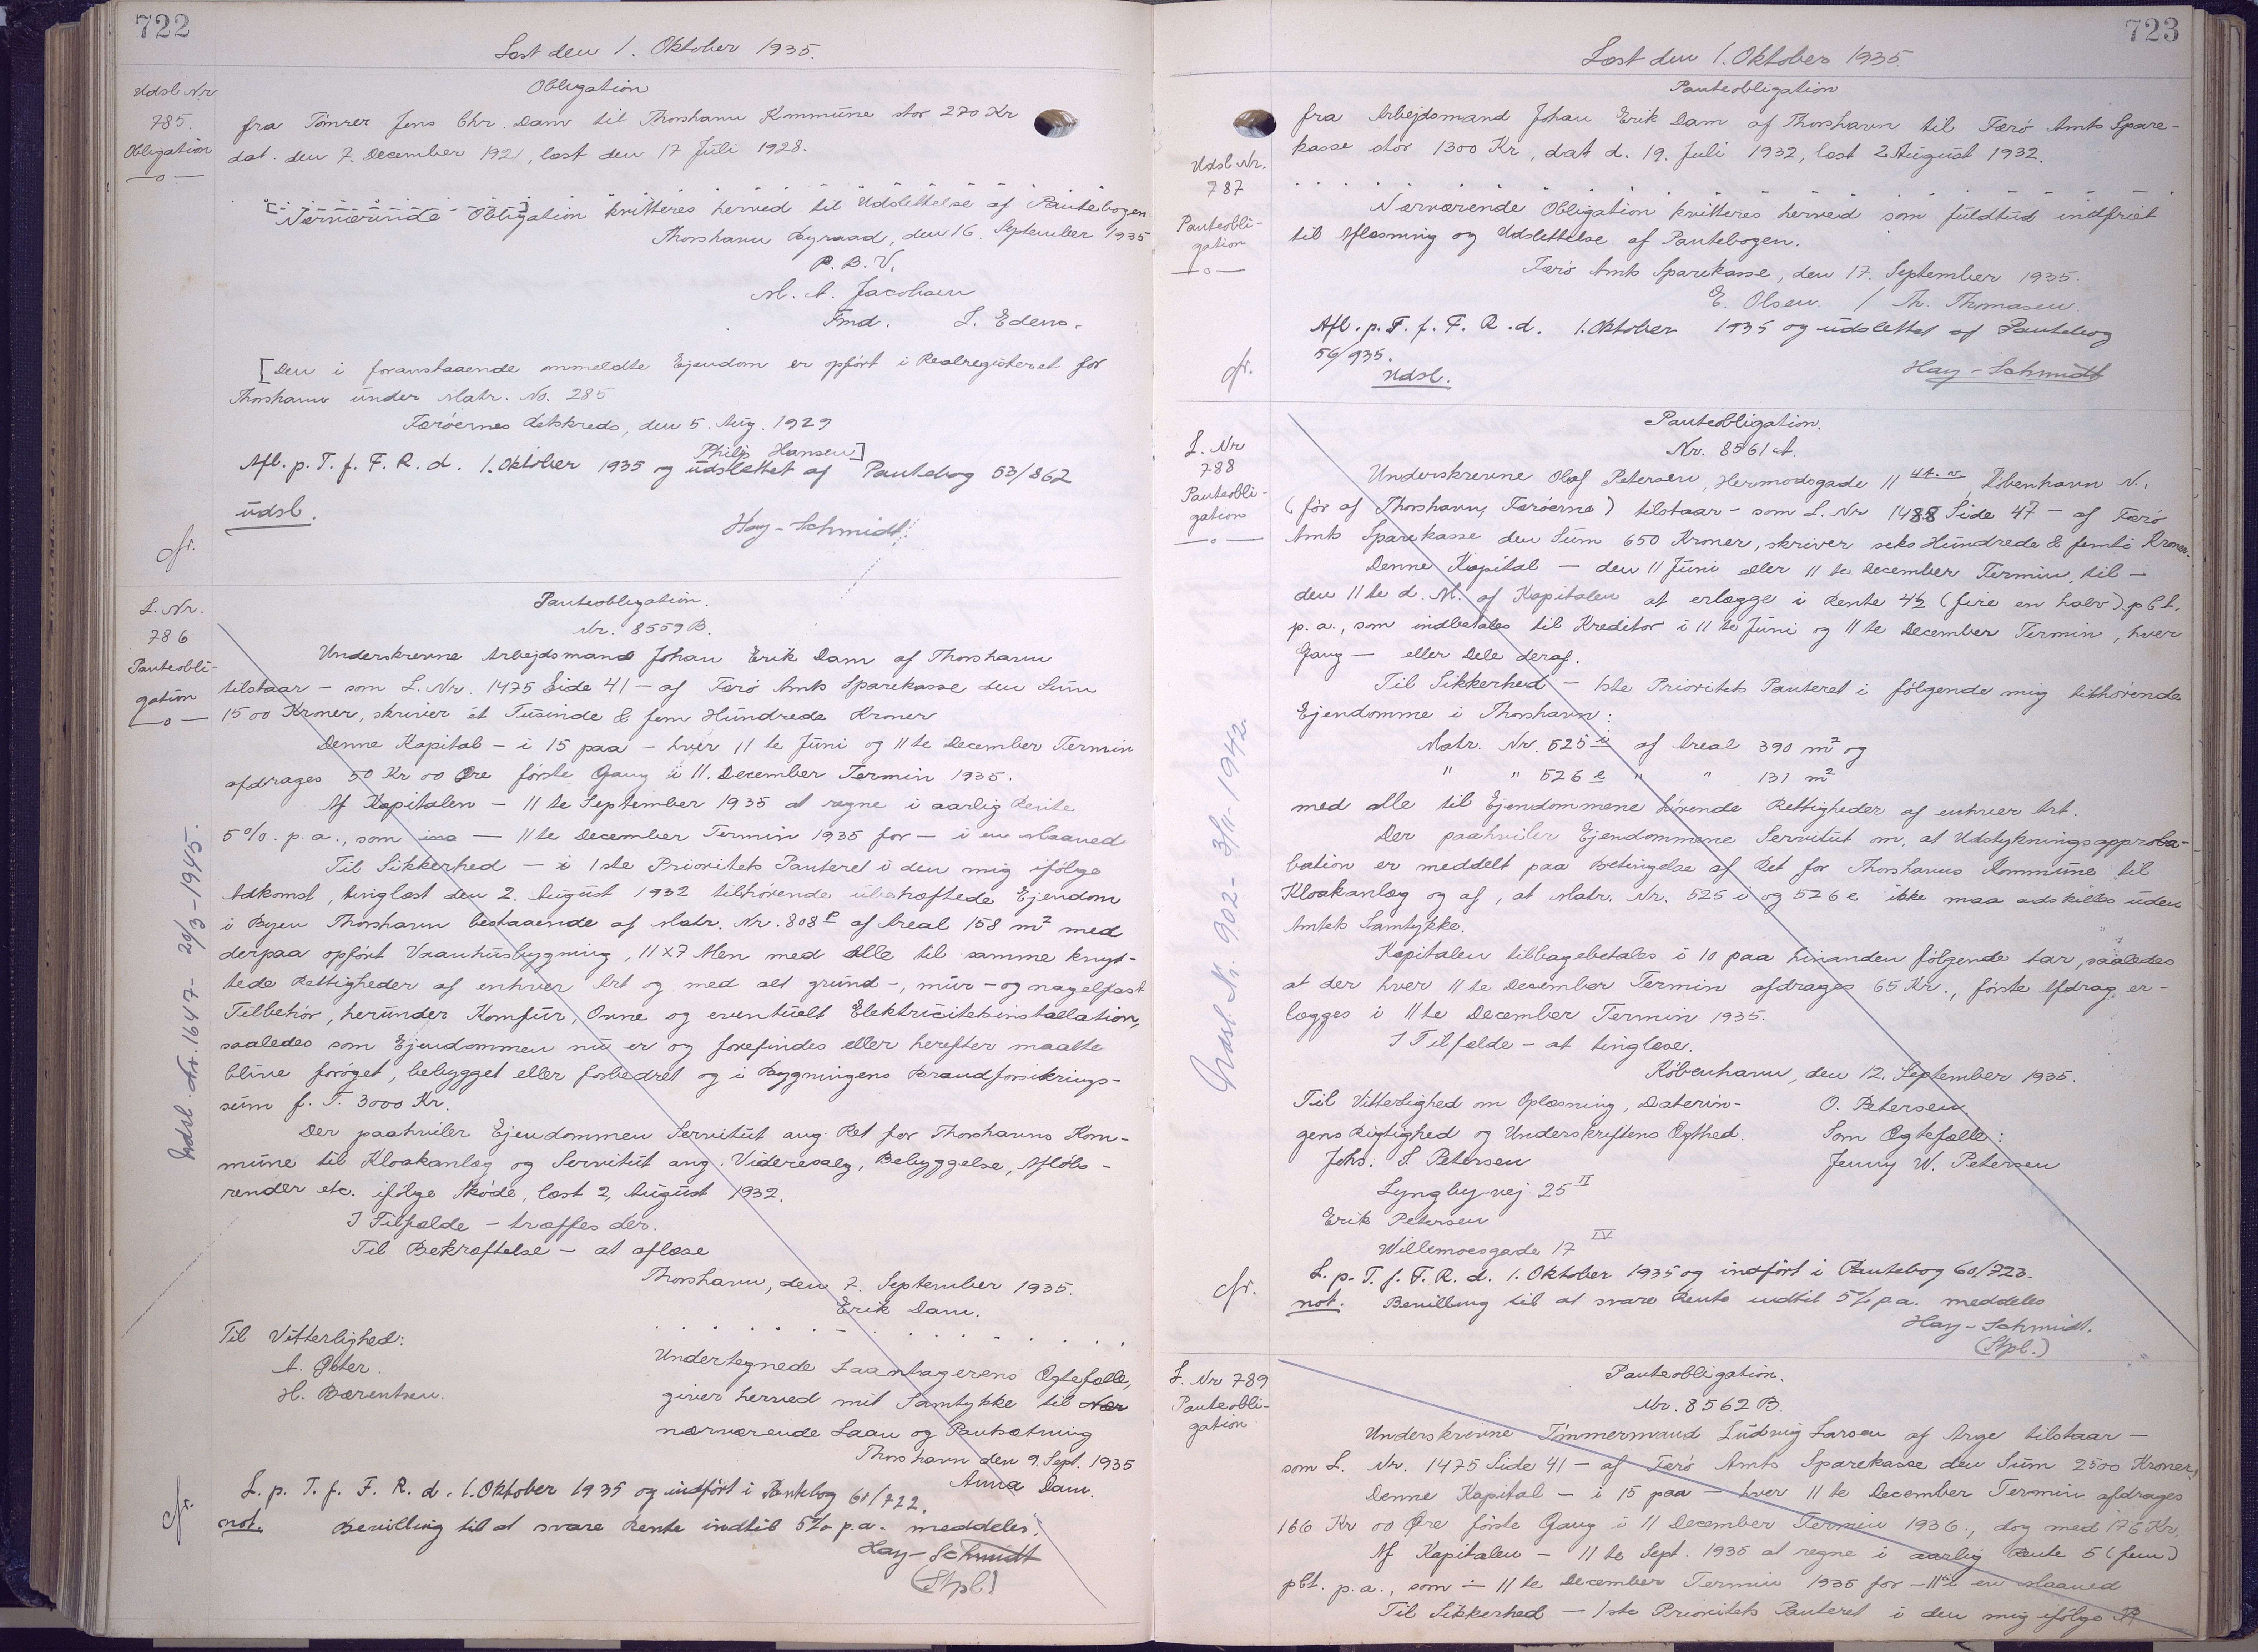 722
Læst den 1. Oktober 1935.
Udsl. Nr.
785.
Obligation
Obligation
fra Tömrer Jens Chr. Dam til Thorshavn Kommune stor 270 Kr
dat. den 7. December 1921, læst den 17 Juli 1928.
[Nærværende Obligation] kvitteres herved til Udslettelse af Pantebogen
Thorshavn Byraad, den 16. September 1935
P. B. V.
M. A. Jacobsen
Fmd. L. Edens.
[Den i foranstaaende ommeldte Ejendom er opført i Realregisteret for
Thorshavn under Matr. No. 285
Færöernes Retskreds, den 5. Aug. 1929
Philip Hansen]
Afl. p. T. f. F. R. d. 1. Oktober 1935 og udslettet af Pantebog 53/862
udsl.
Hay-Schmidt
cfr.
L. Nr.
786
Panteobli-
gation
Panteobligation.
Nr. 8559 B.
Underskrevne Arbejdsmand Johan Erik Dam af Thorshavn
tilstaar - som L. Nr. 1475 Side 41 - af Færö Amts Sparekasse den Sum
1500 Kroner, skriver ét Tusinde & fem Hundrede Kroner
Denne Kapital - i 15 paa - hver 11 te Juni og 11 te December Termin
afdrages 50 Kr 00 Øre förste Gang i 11. December Termin 1935.
Af Kapitalen - 11 te September 1935 at regne i aarlig Rente
5 %. p. a., som - 11 te December Termin 1935 for - i en Maaned
Til Sikkerhed - i 1ste Prioritets Panteret i den mig ifölge
Adkomst, tinglæst den 2. August 1932 tilhörende ubehæftede Ejendom
i Byen Thorshavn bestaaende af Matr. Nr. 808 p af Areal 158 m² med
derpaa opfört Vaanhusbygning, 11 x 7 Alen med alle til samme knyt-
tede Rettigheder af enhver Art og med alt grund-, mur- og nagelfast
Tilbehör, herunder Komfur, Ovne og eventuelt Elektricitetsinstallation,
saaledes som Ejendommen nu er og forefindes eller herefter maatte
blive foröget, bebygget eller forbedret og i Bygningens Brandforsikrings-
sum p. T. 3000 Kr.
Der paahviler Ejendommen Servitut ang. Ret for Thorshavns Kom-
mune til Kloakanlæg og Servitut ang. Videresalg, Bebyggelse, Aflöbs-
render etc. ifölge Sköde, læst 2. August 1932.
I Tilfælde - træffes der.
Til Bekræftelse - at aflæse
Thorshavn, den 7. September 1935.
Erik Dam.
Til Vitterlighed:
A. Øster.
H. Bærentsen.
Undertegnede Laantagerens Ægtefælle,
giver herved mit Samtykke til Nær
nærværende Laan og Pantsætning
Thorshavn den 9. Sept. 1935
Anna Dam.
L. p. T. f. F. R. d. 1. Oktober 1935 og indfört i Pantebog 60/722.
not. Bevilling til at svare Rente indtil 5% p.a. meddeles.
Hay-Schmidt
(Stpl.)
cfr.
Udsl. Nr. 1647 - 29/3-1945.
723
Læst den 1. Oktober 1935
Udsl. Nr.
787
Panteobli-
gation
Panteobligation
fra Arbejdsmand Johan Erik Dam af Thorshavn til Færö Amts Spare-
kasse stor 1300 Kr, dat d. 19. Juli 1932, læst 2 August 1932.
Nærværende Obligation kvitteres herved som fuldtud indfriet
til Aflæsning og Udslettelse af Pantebogen.
Færö Amts Sparekasse, den 17. September 1935.
E. Olsen. / Th. Thomasen.
Afl. p. T. f. F. R. d. 1. Oktober 1935 og udslettet af Pantebog
56/935.
Udsl.
Hay-Schmidt
cfr.
L. Nr
788
Panteobli-
gation
Panteobligation.
Nr. 8561 A.
Underskrevne Olaf Petersen, Hermodsgade 11 st. v. København N.,
(för af Thorshavn, Færöerne) tilstaar - som L. Nr 1488 Side 47 - af Færö
Amts Sparekasse den Sum 650 Kroner, skriver seks Hundrede & femti Kroner.
Denne Kapital - den 11 Juni eller 11 te December Termin, til -
den 11 te d. M. af Kapitalen at erlægge i Rente 4½ (fire en halv) pCt.
p. a., som indbetales til Kreditor i 11 te Juni og 11 te December Termin, hver
Gang - eller Dele deraf.
Til Sikkerhed - 1ste Prioritets Panteret i fölgende mig tilhörende
Ejendomme i Thorshavn:
Matr. Nr. 525 i af Areal 390 m² og
" " 526 e " " 131 m²
med alle til Ejendommene hörende Rettigheder af enhver Art.
Der paahviler Ejendommene Servitut om, at Udstykningsapproba-
bation er meddelt paa Betingelse af Ret for Thorshavns Kommune til
Kloakanlæg og af, at Matr. Nr. 525 i og 526 e ikke maa adskilles uden
Amtets Samtykke.
Kapitalen tilbagebetales i 10 paa hinanden fölgende Aar, saaledes
at der hver 11 te December Termin afdrages 65 Kr., förste Afdrag er-
lægges i 11 te December Termin 1935.
I Tilfælde - at tinglæse.
København, den 12. September 1935.
Til Vitterlighed om Oplæsning, Daterin-
gens Rigtighed og Underskriftens Ægthed.
O. Petersen
Som Ægtefælle:
Jenny W. Petersen
Johs. S. Petersen
Lyngbyvej 25 II
Erik Petersen
Willemoesgade 17 IV
L. p. T. f. F. R. d. 1. Oktober 1935 og indfört i Pantebog 60/723.
not. Bevilling til at svare Rente indtil 5% p.a. meddeles
Hay-Schmidt.
(Stpl.)
cfr.
Udsl. Nr. 902 - 3/11-1942.
L. Nr 789
Panteobli-
gation
Panteobligation.
Nr. 8562 B.
Underskrivne Tömmermand Ludvig Larsen af Arge tilstaar -
som L. Nr. 1475 Side 41 - af Færö Amts Sparekasse den Sum 2500 Kroner,
Denne Kapital - i 15 paa - hver 11 te December Termin afdrages
166 Kr 00 Øre förste Gang i 11 December Termin 1936., dog med 176 Kr.
Af Kapitalen - 11 te Sept. 1935 at regne i aarlig Rente 5 (fem)
pCt. p. a., som - 11 te December Termin 1935 for - i en Maaned
Til Sikkerhed - 1ste Prioritets Panteret i den mig ifölge